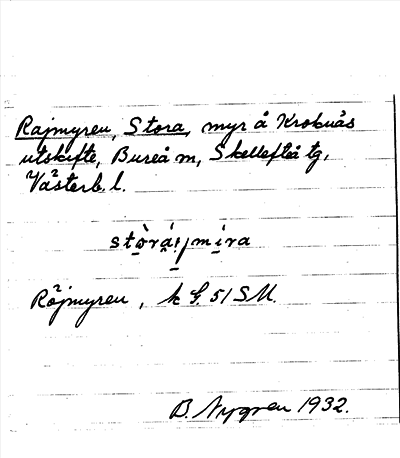 Rajmyren, Stora, myr å Kroknäs
utskifte, Bureå m, Skellefteå tg,
Västerb. l.
Röjmyren, k G. 51 SM.
B. Nygren 1932.